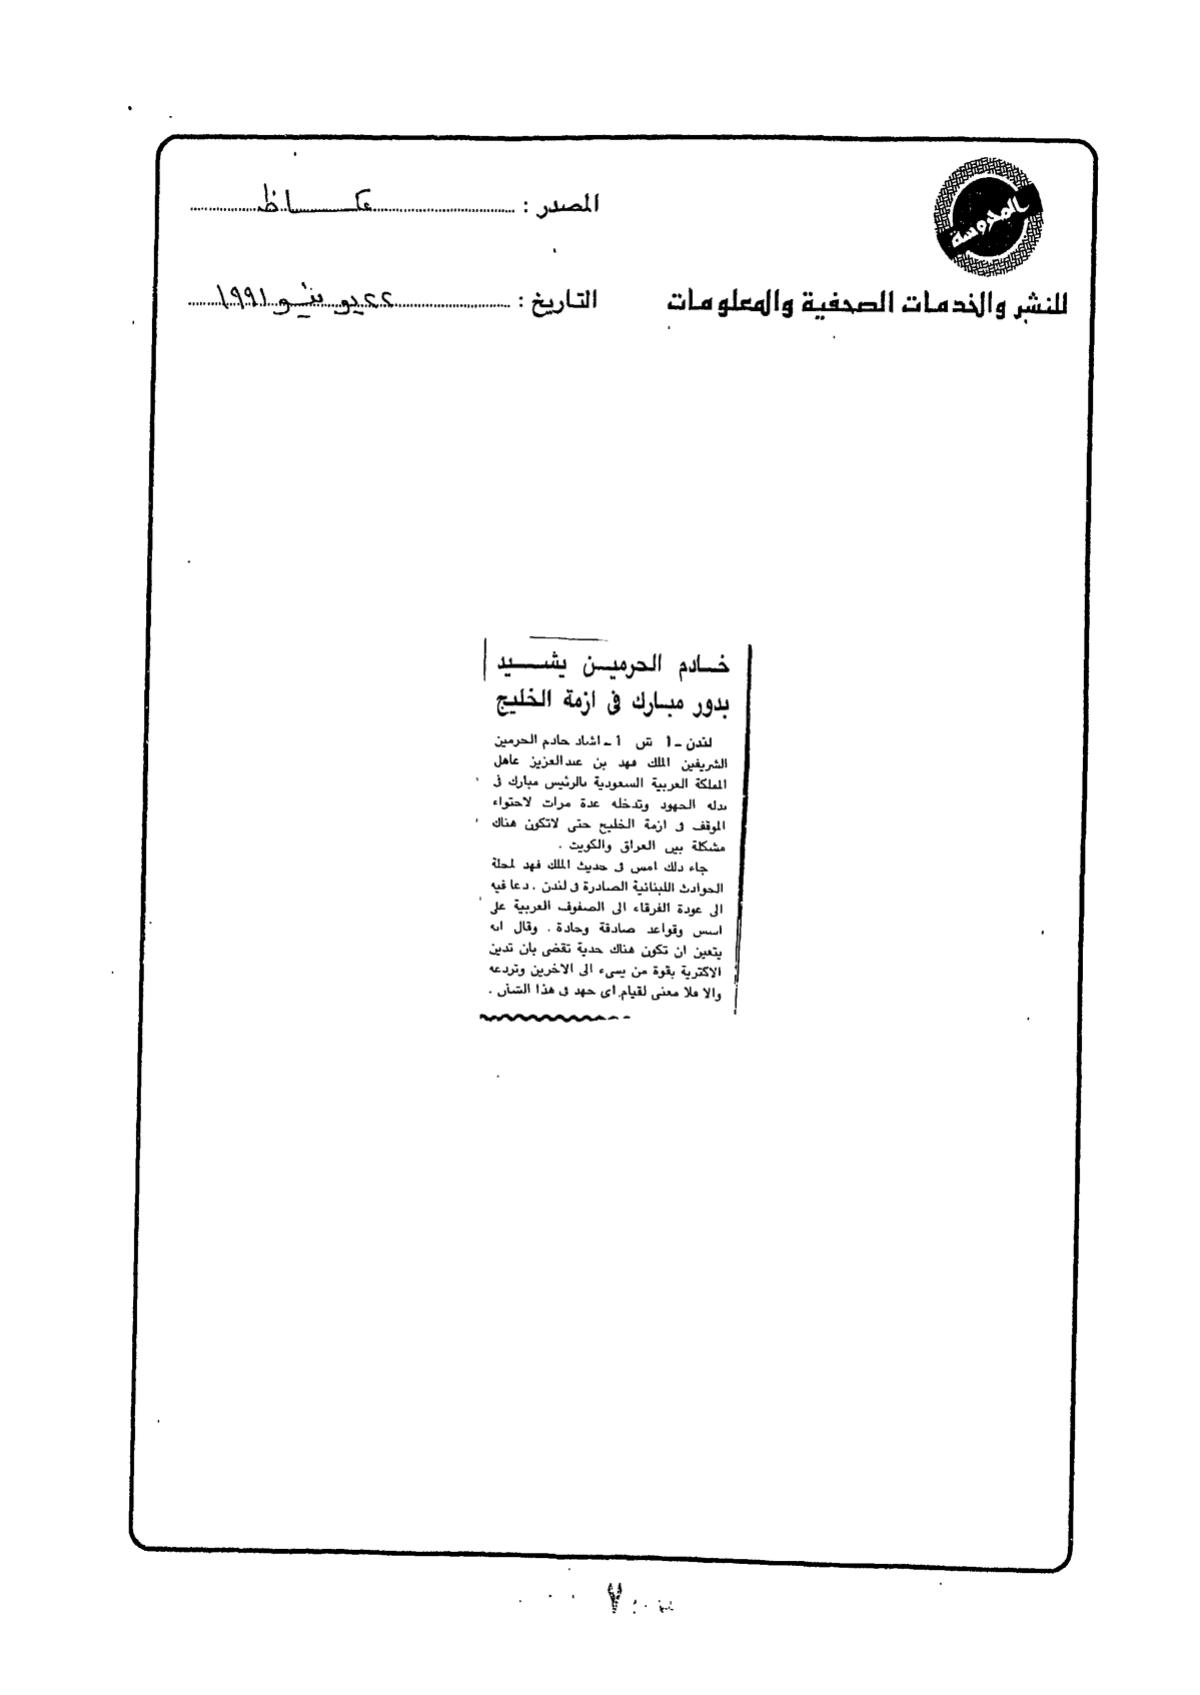 المحروسة
للنشر والخدمات الصحفية والمعلومات
المصدر : عكاظ
التاريخ : ٢٢ يونيو ١٩٩١
خادم الحرمين يشيد
بدور مبارك فى ازمة الخليج
لندن - أ ش أ - اشاد خادم الحرمين
الشريفين الملك فهد بن عبدالعزيز عاهل
المملكة العربية السعودية بالرئيس مبارك فى
بذله الجهود وتدخله عدة مرات لاحتواء
الموقف فى ازمة الخليج حتى لاتكون هناك
مشكلة بين العراق والكويت .
جاء ذلك امس فى حديث الملك فهد لمجلة
الحوادث اللبنانية الصادرة فى لندن . دعا فيه
الى عودة الفرقاء الى الصفوف العربية على
اسس وقواعد صادقة وجادة . وقال انه
يتعين ان تكون هناك جدية تقضى بان تدين
الاكثرية بقوة من يسىء الى الاخرين وتردعه
والا فلا معنى لقيام اى جهد فى هذا الشأن .
٧